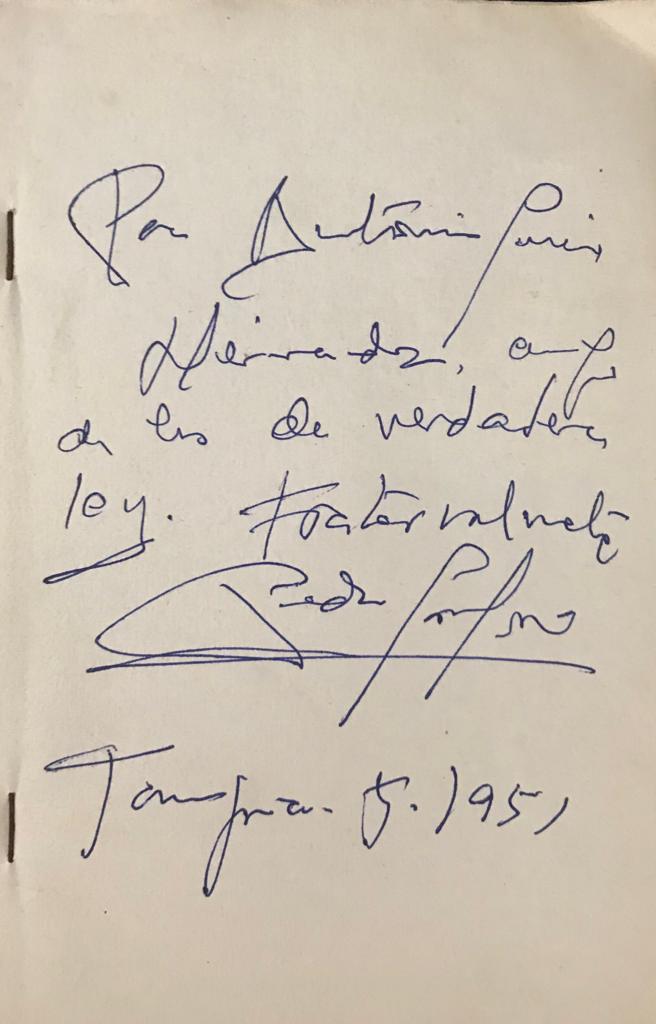 Para Antonio
Hernandez, amigo
de los de verdadera
ley. Fraternalmente
Pedro Garfias
5. 1951